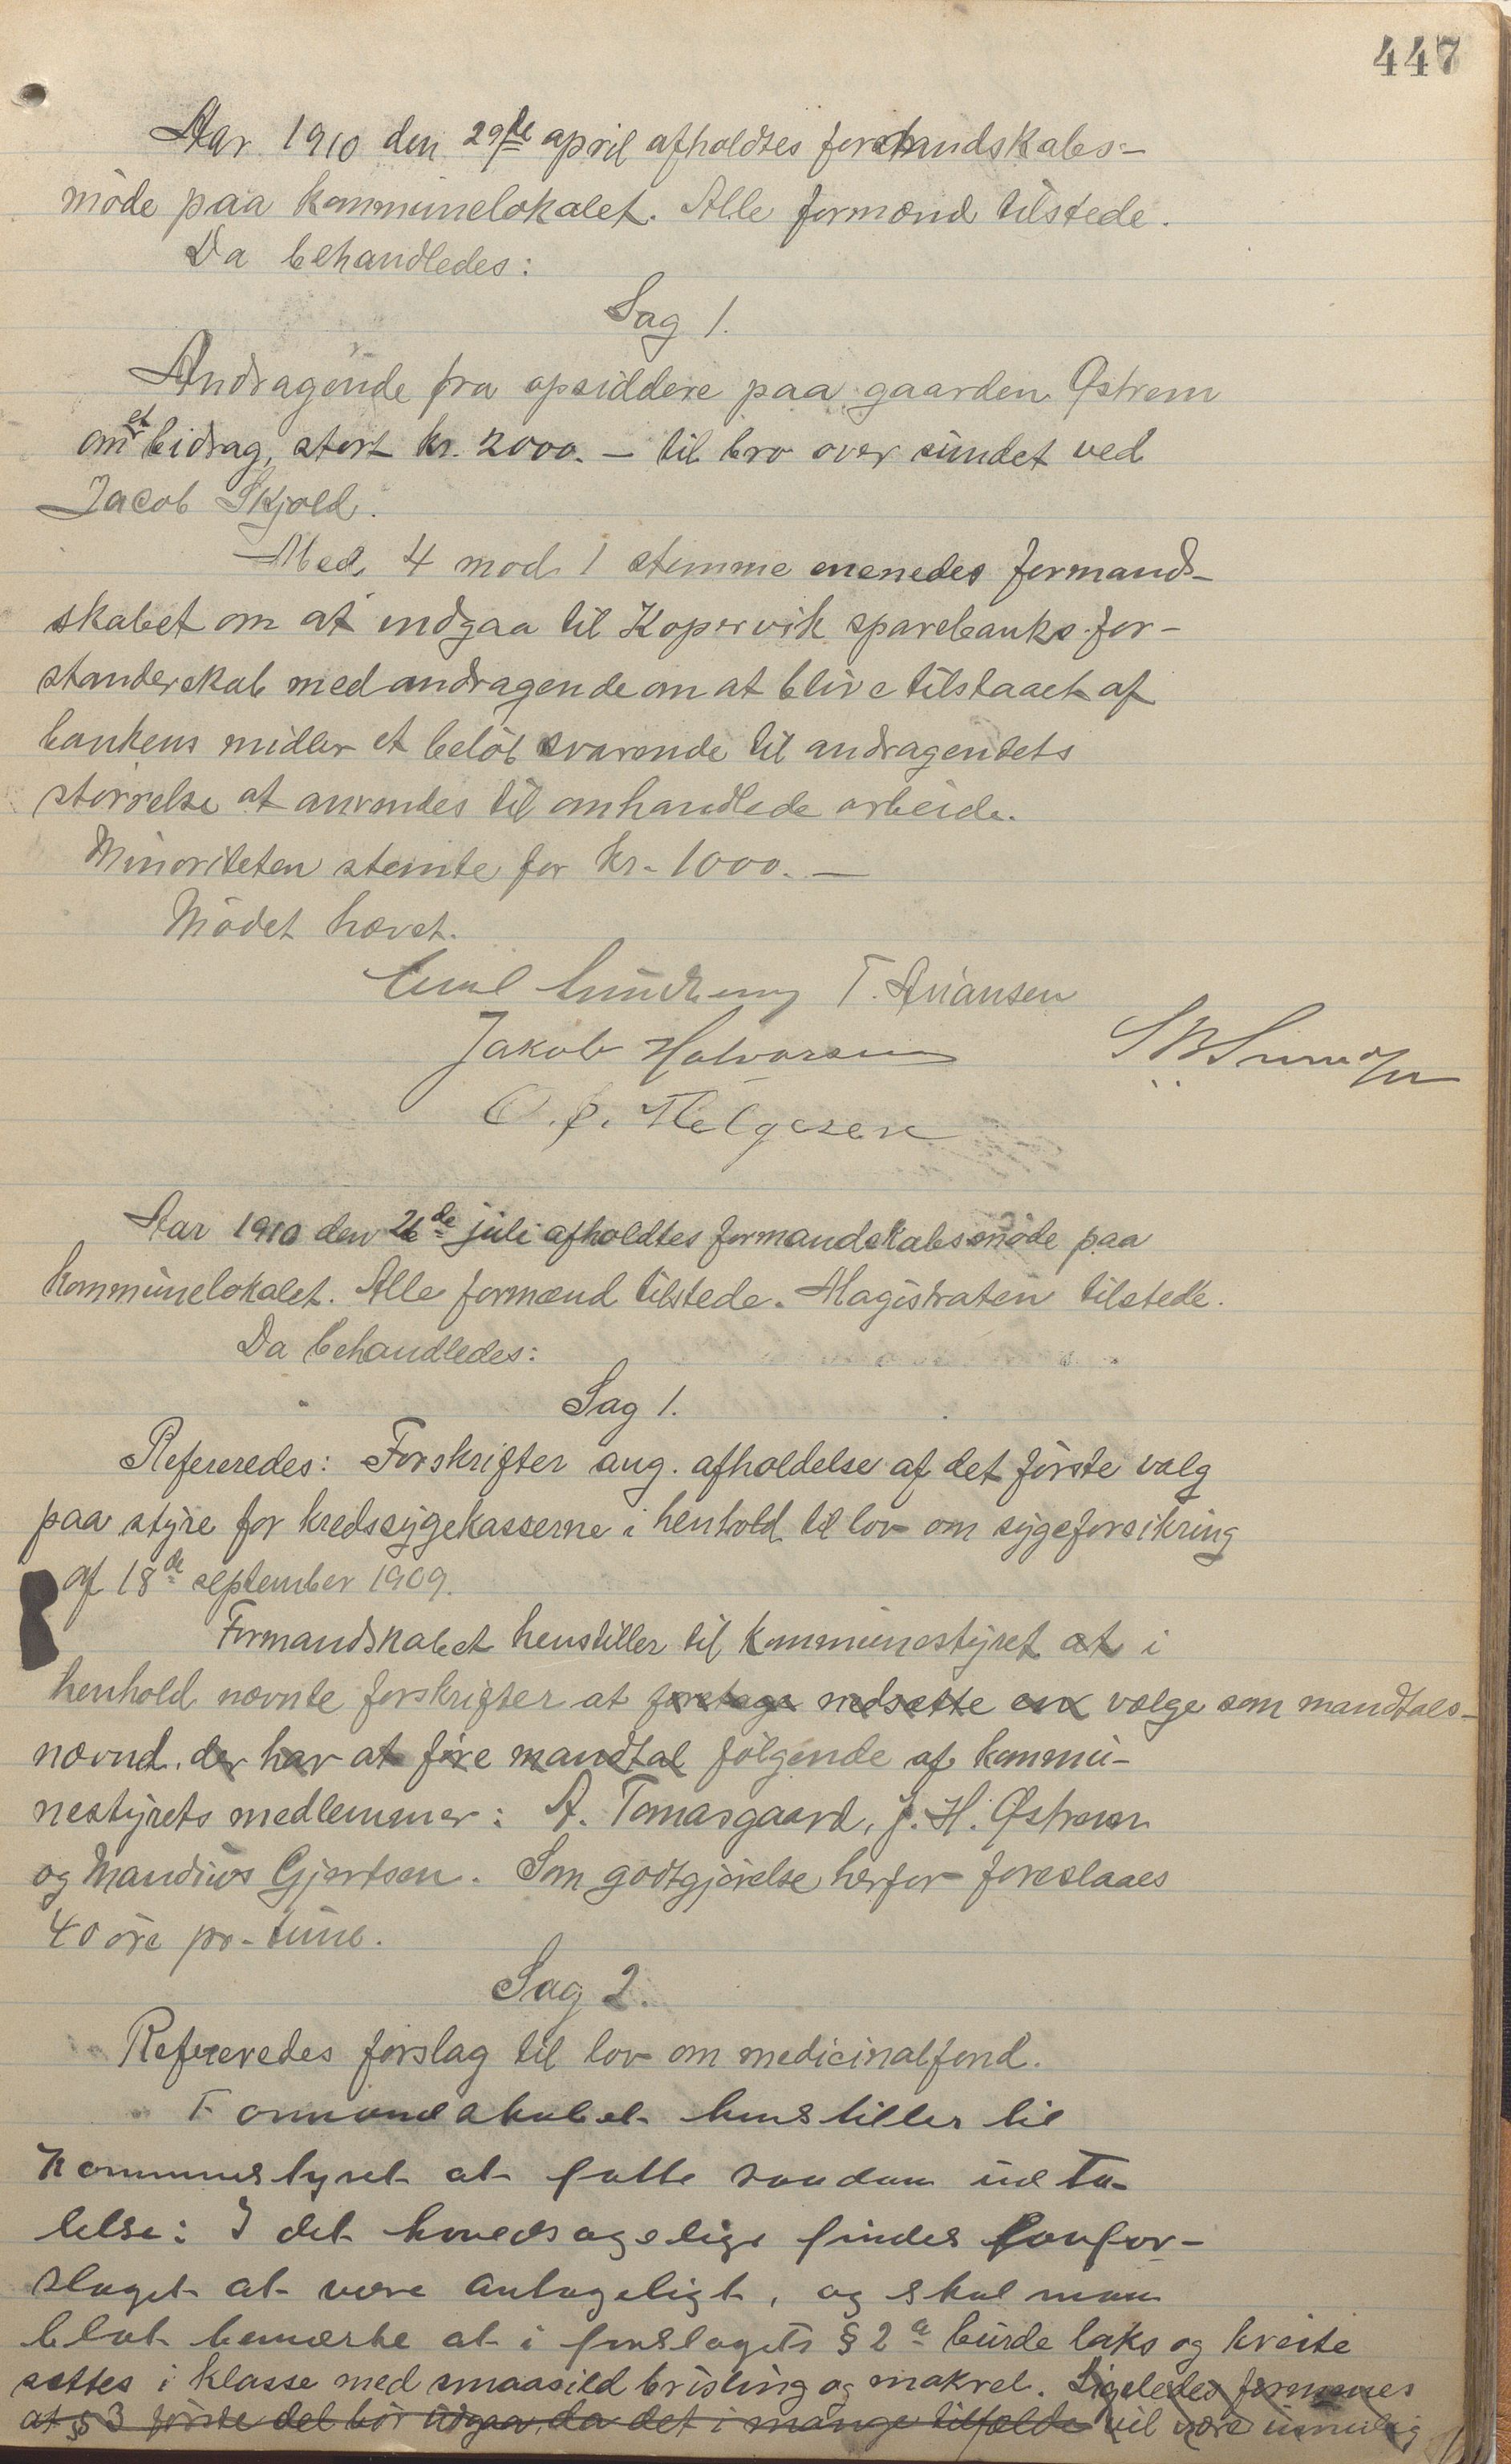 447
Aar 1910 den 29de april afholdtes formandskabs-
møde paa kommunelokalet. Alle formænd tilstede.
Da behandledes:
Sag 1.
Andragende fra opsiddere paa gaarden Østrem
om et bidrag, stort kr. 2000.- til bro over sundet ved
Jacob Skjold.
Med 4 mod 1 stemme enenedes formand-
skabet om at indgaa til Kopervik sparebanks for-
standerskab med andragende om at blive tilstaaet af
bankens midler et beløb svarende til andragendets
størrelse at anvendes til omhandlede arbeide.
Minoriteten stemte for kr. 1000.-
Mødet hævet.
T. Anansen
Jakob Halvorsen
O. P. Helgesen
Aar 1910 den 26de juli afholdtes formandskabsmøde paa
kommunelokalet. Alle formænd tilstede. Magistraten tilstede.
Da behandledes:
Sag 1.
Refereredes: Forskrifter ang. afholdelse af det første valg
paa styre for kredssygekasserne i henhold til lov om sygeforsikring
af 18de september 1909.
Formandskabet henstiller til kommunestyret at i
henhold nævnte forskrifter at foretage nedsætte en vælge som mandtals-
nævnd der har at føre mandtal følgende af kommu-
nestyrets medlemmer: A. Tomasgaard, J. H. Østrem
og Mandius Gjertsen. Som godtgjørelse herfor foreslaaes
40 øre pr. time.
Sag 2.
Refereredes forslag til lov om medicinalfond.
Formandskabet henstiller til
kommunestyret at fatte saadan udta-
lelse: I det hovedsagelige findes lovfor-
slaget at være antageligt, og skal man
blot bemærke at i forslagets § 2 a burde laks og kveite
sættes i klasse med smaasild brisling og makrel. Ligeledes formenes
at § 3 første del bør udgaa, da det i mange tilfælde vil være umulig